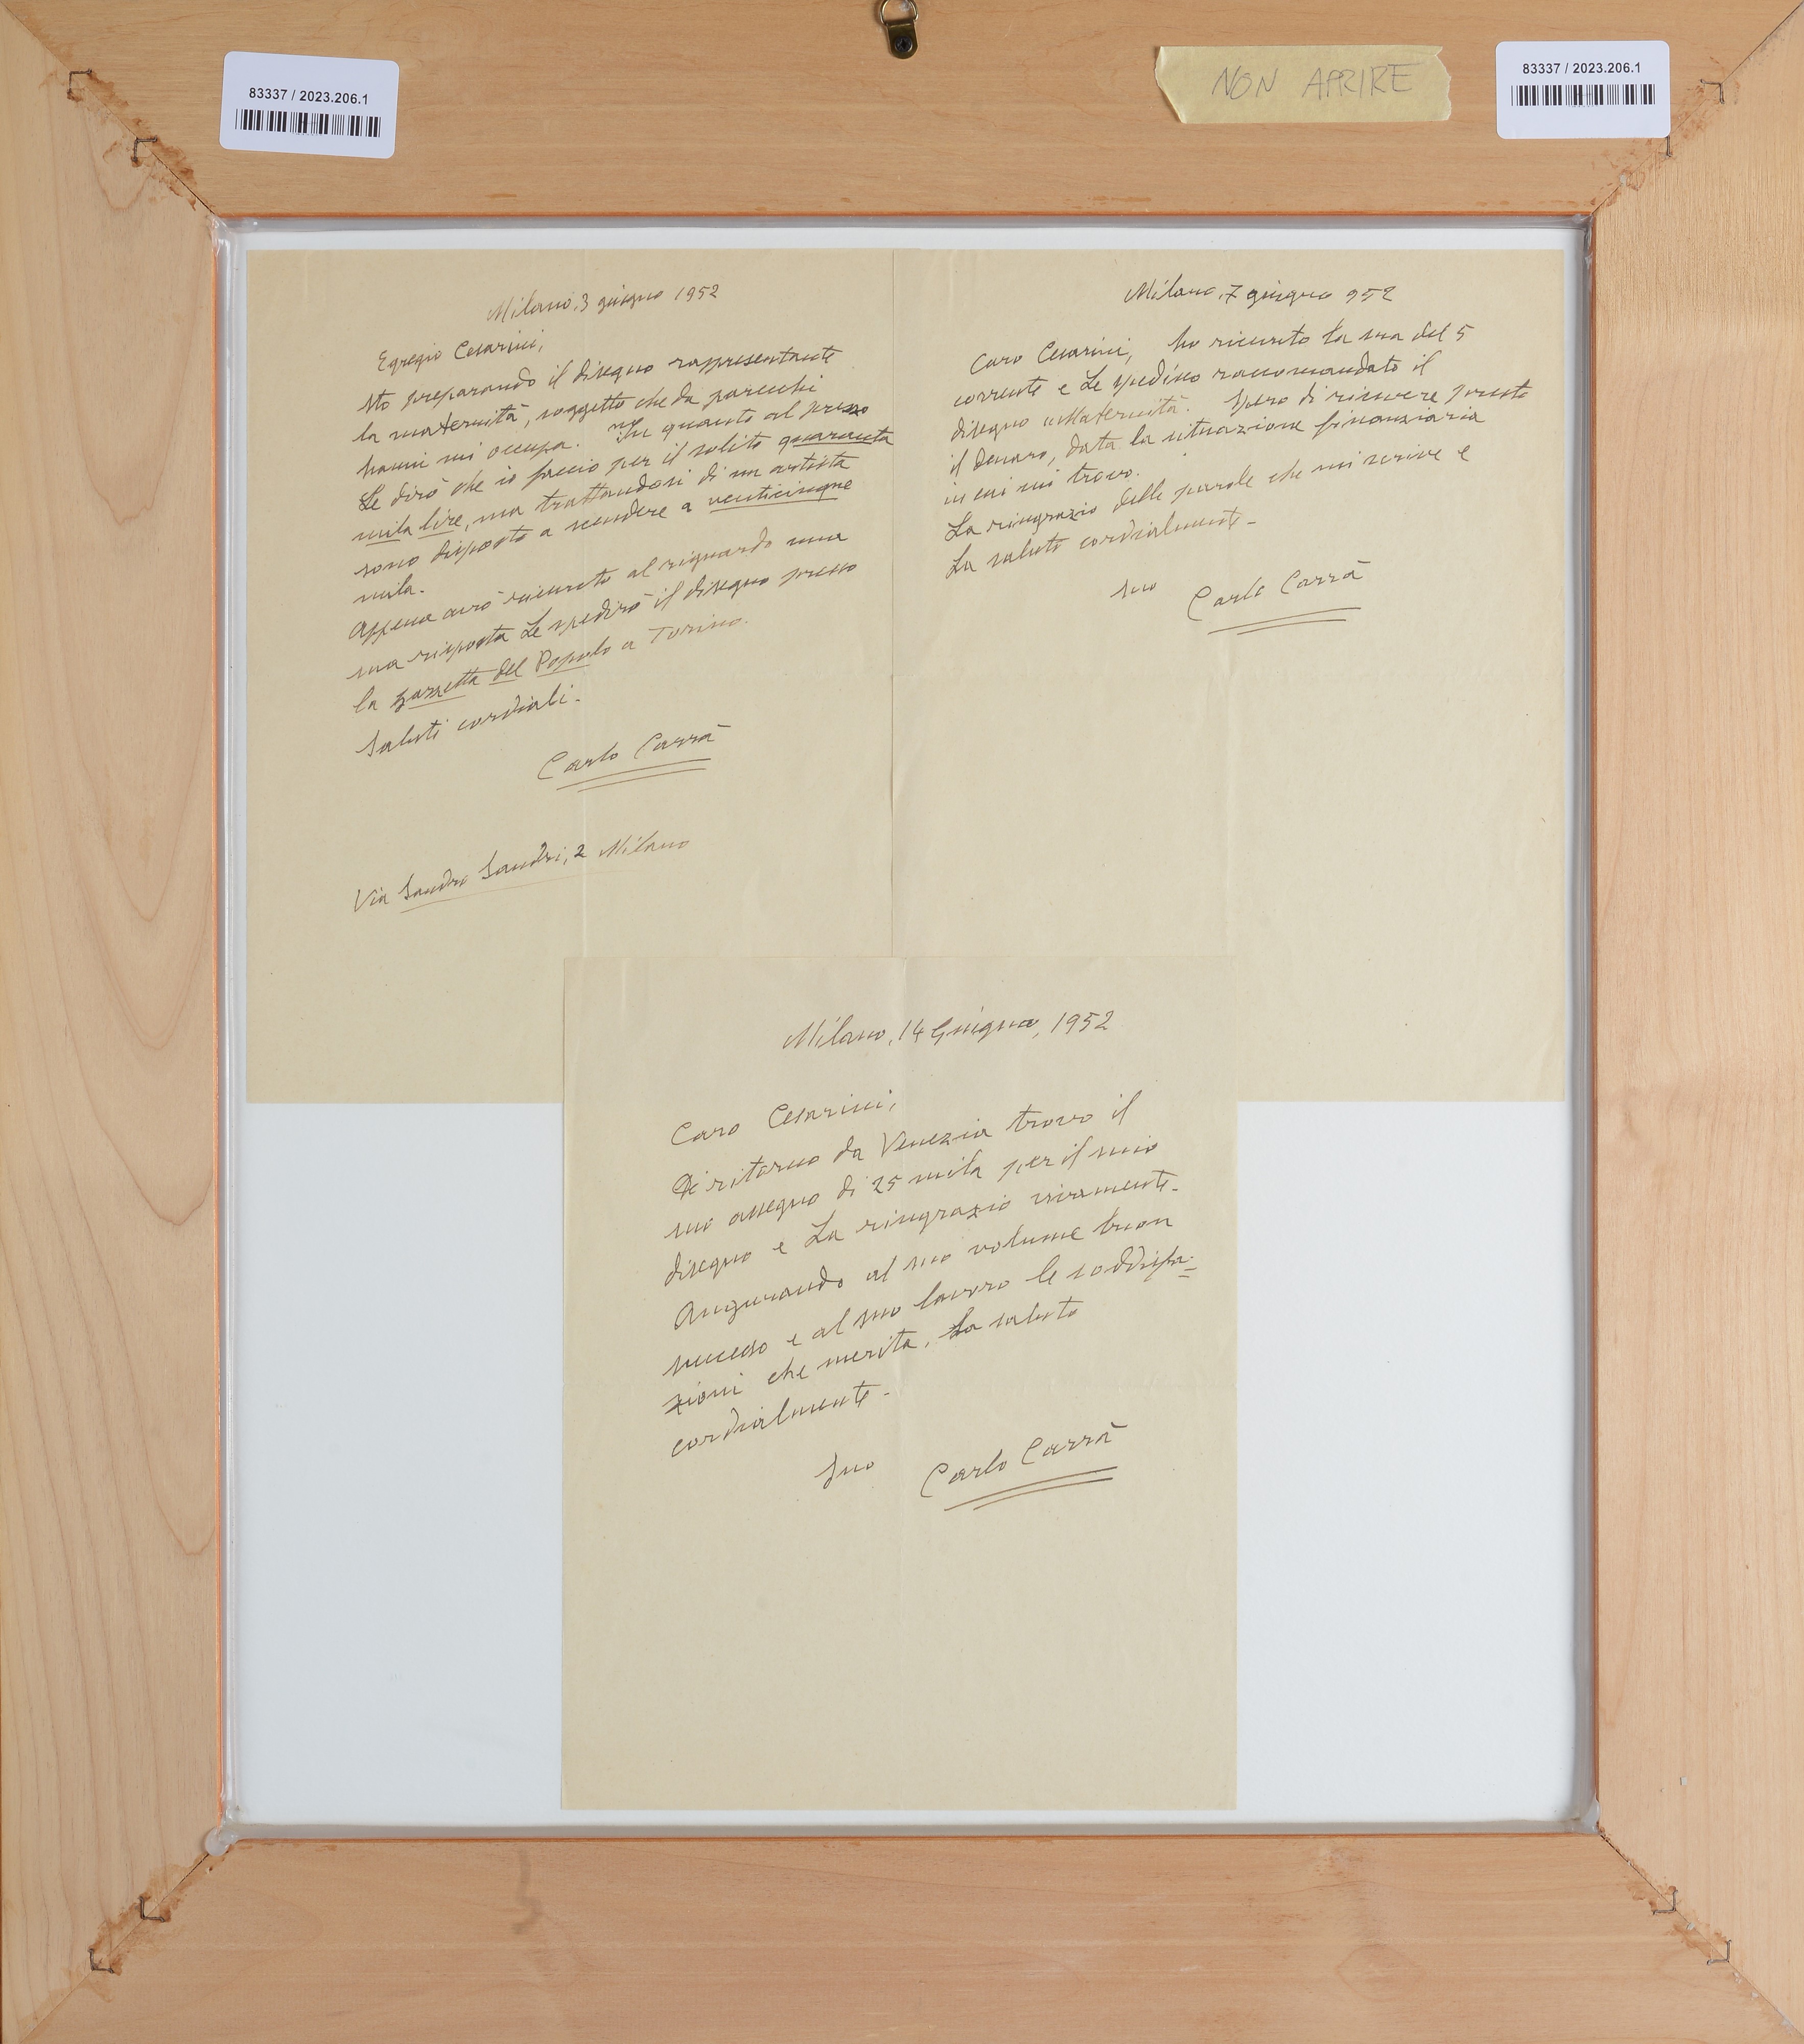 83337 / 2023.206.1
NON APRIRE
83337 / 2023.206.1
Milano, 3 giugno 1952
Egregio Cesarini,
sto preparando il disegno rappresentante
la maternità, soggetto che da parecchi
hanni mi occupa. In quanto al prezzo
Le dirò che io faccio per il solito quaranta
mila lire, ma trattandosi di un artista
sono disposto a scendere a venticinque
mila.
Appena avrò ricevuto al riguardo una
sua risposta Le spedirò il disegno presso
la gazzetta del Popolo a Torino.
Saluti cordiali.
Carlo Carrà
Via Sandro Sandri, 2 Milano
Milano, 7 giugno 952
Caro Cesarini, ho ricevuto la sua del 5
corrente e Le spedisco raccomandato il
disegno "Maternità. Spero di ricevere presto
il denaro, data la situazione finanziaria
in cui mi trovo.
La ringrazio delle parole che mi scrive e
La saluto cordialmente.
suo Carlo Carrà
Milano, 14 Giugno, 1952
Caro Cesarini,
Di ritorno da Venezia trovo il
suo assegno di 25 mila per il mio
disegno e La ringrazio vivamente.
Augurando al suo volume buon
successo e al suo lavoro le soddisfa=
zioni che merita, La saluto
cordialmente.
Suo Carlo Carrà